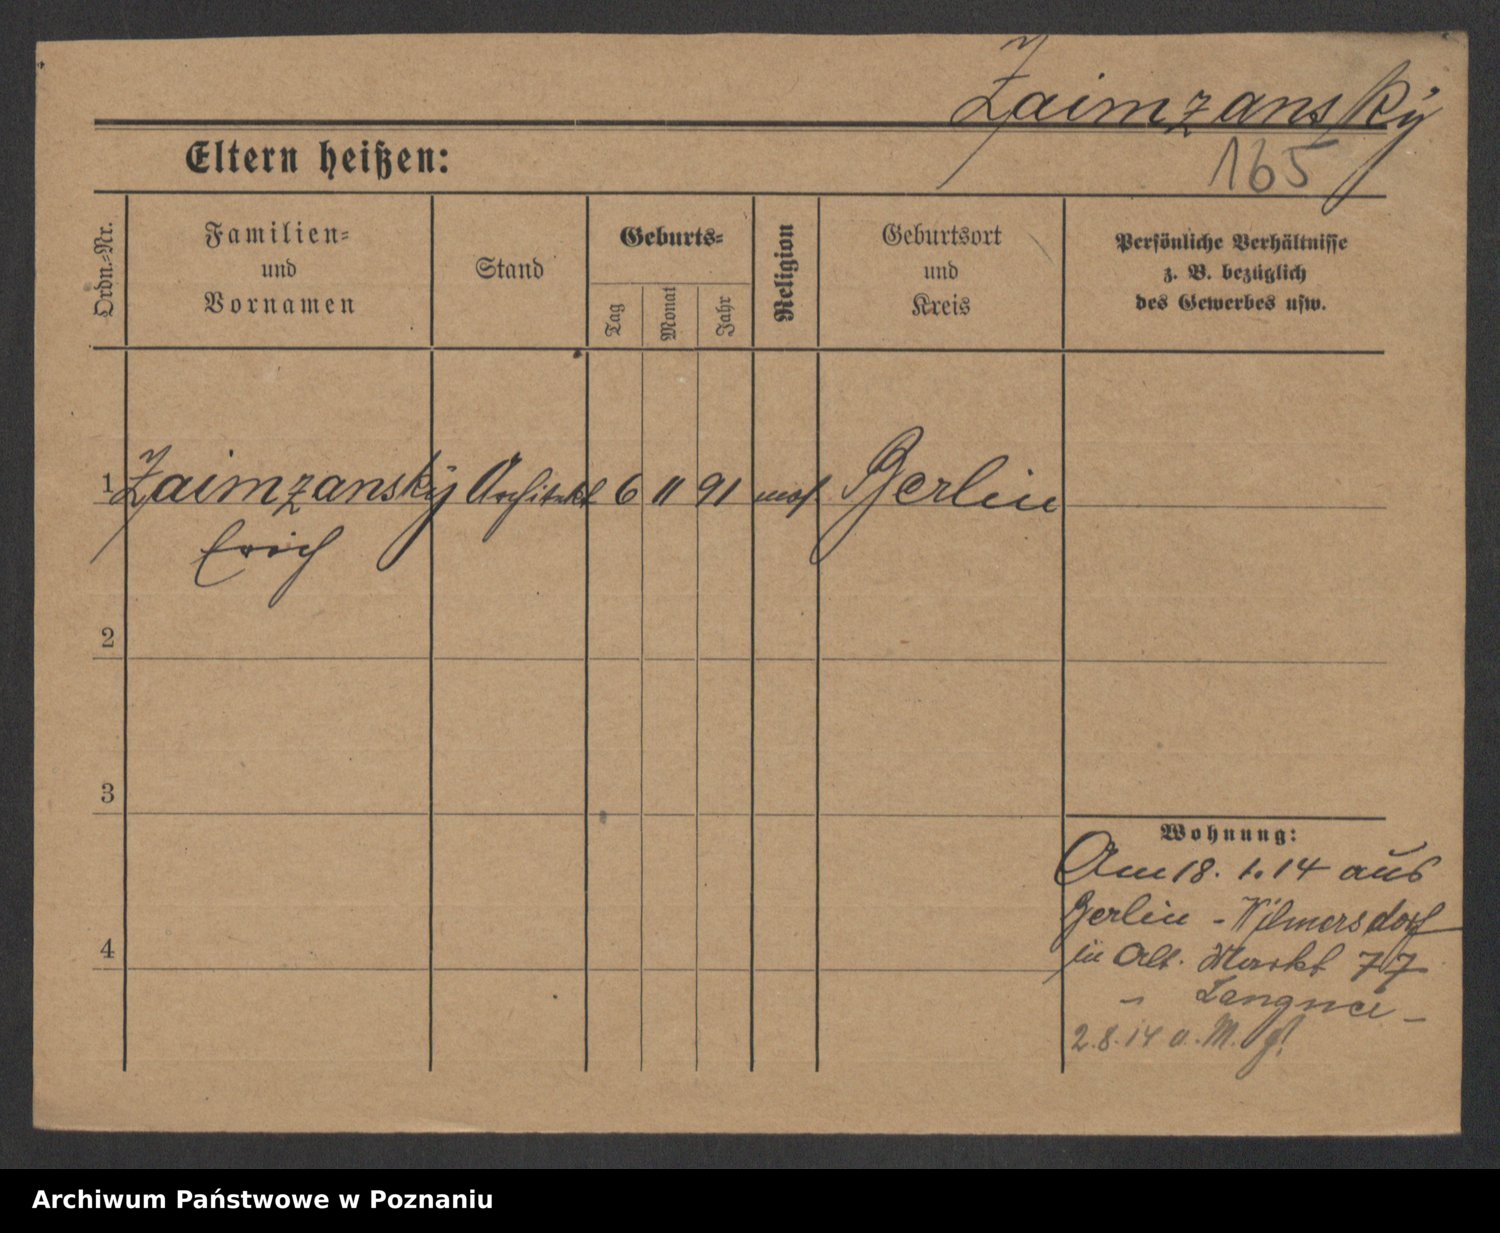 Zaimzansky
165
Eltern heißen:
Ordn.-Nr.
Familien-
und
Vornamen
Stand
Geburts-
Tag
Monat
Jahr
Religion
Geburtsort
und
Kreis
Persönliche Verhältnisse
z. B. bezüglich
des Gewerbes usw.
1 Zaimzansky Architekt 6 11 91 mos. Berlin
Erich
2
3
Wohnung:
Am 18. 1. 14 aus
Berlin - Wilmersdorf
in Alt. Markt 77
4
2.8.14 a. M.
Archiwum Państwowe w Poznaniu